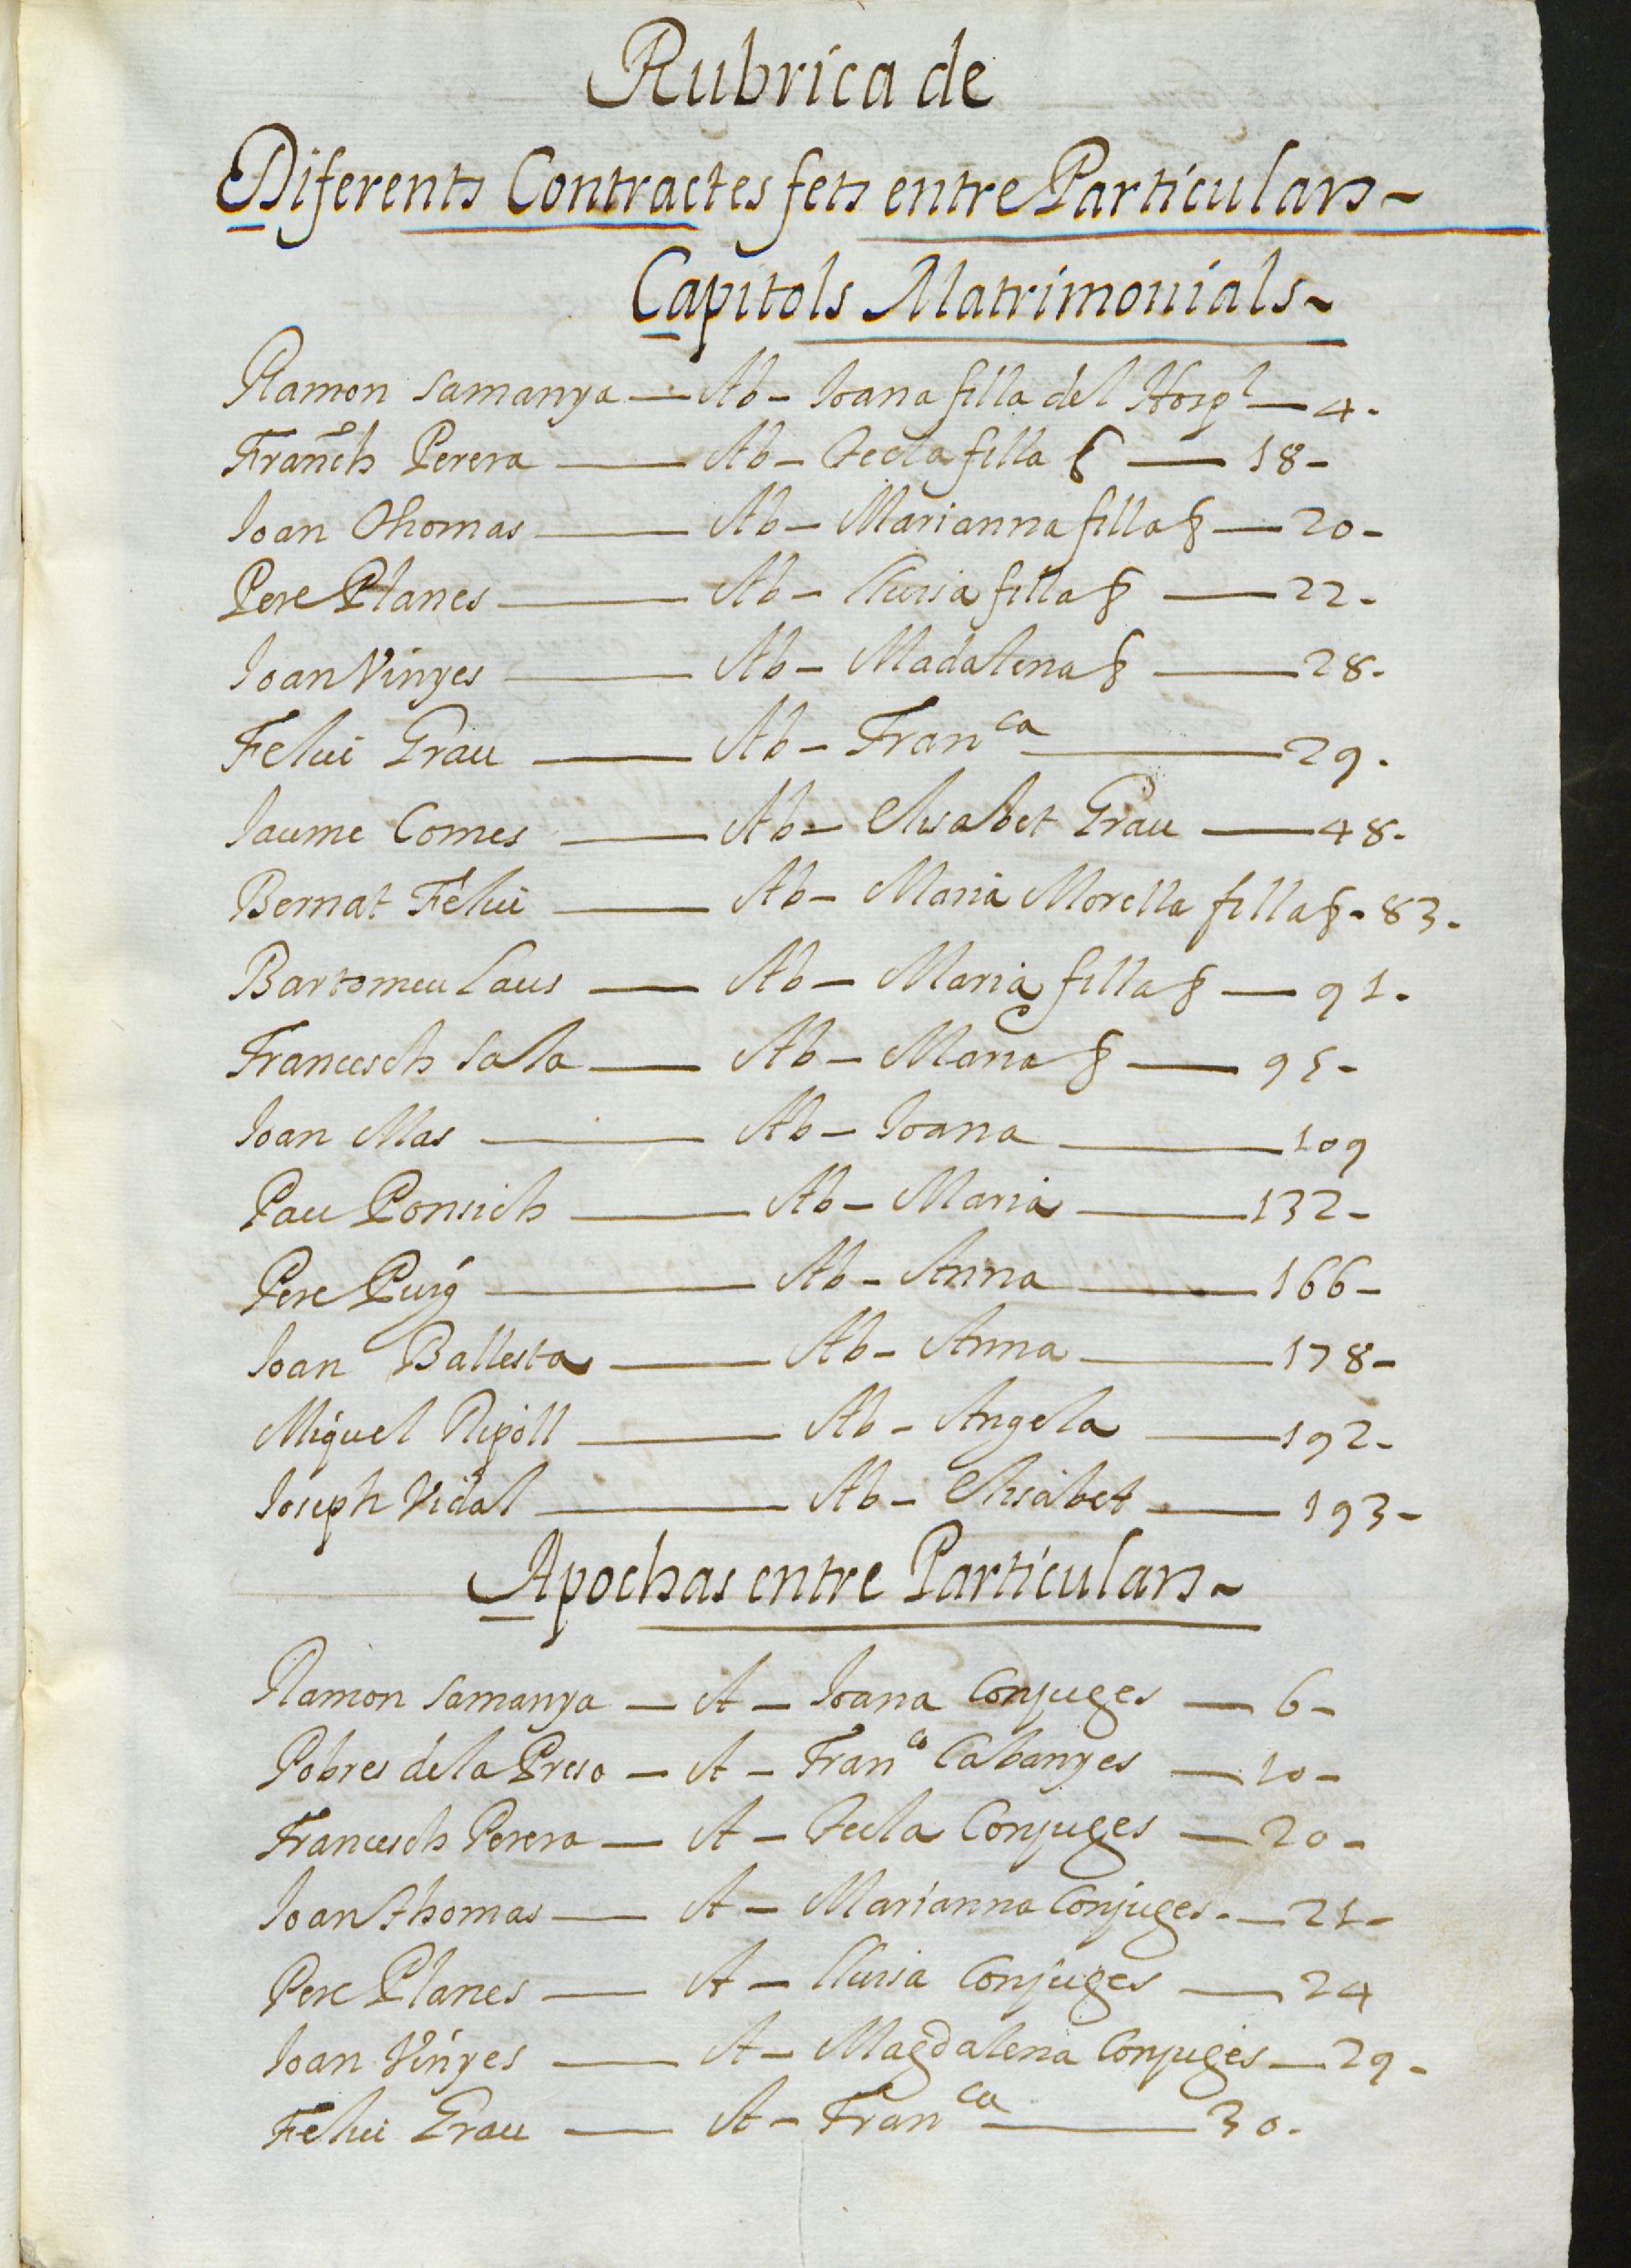 Rubrica de
Diferents Contractes fets entre Particulars~
Capitols Matrimonials~
Ramon Samanya — Ab – Ioana filla del Hospl — 4.
Franch Perera — Ab – Tecla filla § — 18–
Ioan Thomas — Ab – Marianna filla § — 20–
Pere Planes — Ab – Llusia filla § — 22–
Ioan Vinyes — Ab – Madalena § — 28.
Feliu Grau — Ab – Franca — 29.
Iaume Comes — Ab – Elisabet Grau — 48–
Bernat Feliu — Ab – Maria Morella filla §. 83.
Bartomeu Laus — Ab – Maria filla § — 91.
Francesch Sala — Ab – Maria § — 95–
Ioan Mas — Ab – Ioana — 109
Pau Ponsich — Ab – Maria — 132–
Pere Puig — Ab – Anna — 166–
Ioan Ballesta — Ab – Anna — 178–
Miquel Ripoll — Ab – Angela — 192–
Ioseph Vidal — Ab – Elisabet — 193–
Apochas entre Particulars~
Ramon Samanya — A – Ioana Conjuges — 6–
Pobres de la Preso — A – Franco Cabanyes — 10–
Francesch Perera — A – Tecla Conjuges — 20–
Ioan Thomas — A – Marianna Conjuges. — 21–
Pere Planes — A – Llusia Conjuges — 24
Ioan Vinyes — A – Magdalena Conjuges — 29–
Feliu Grau — A – Franca — 30.